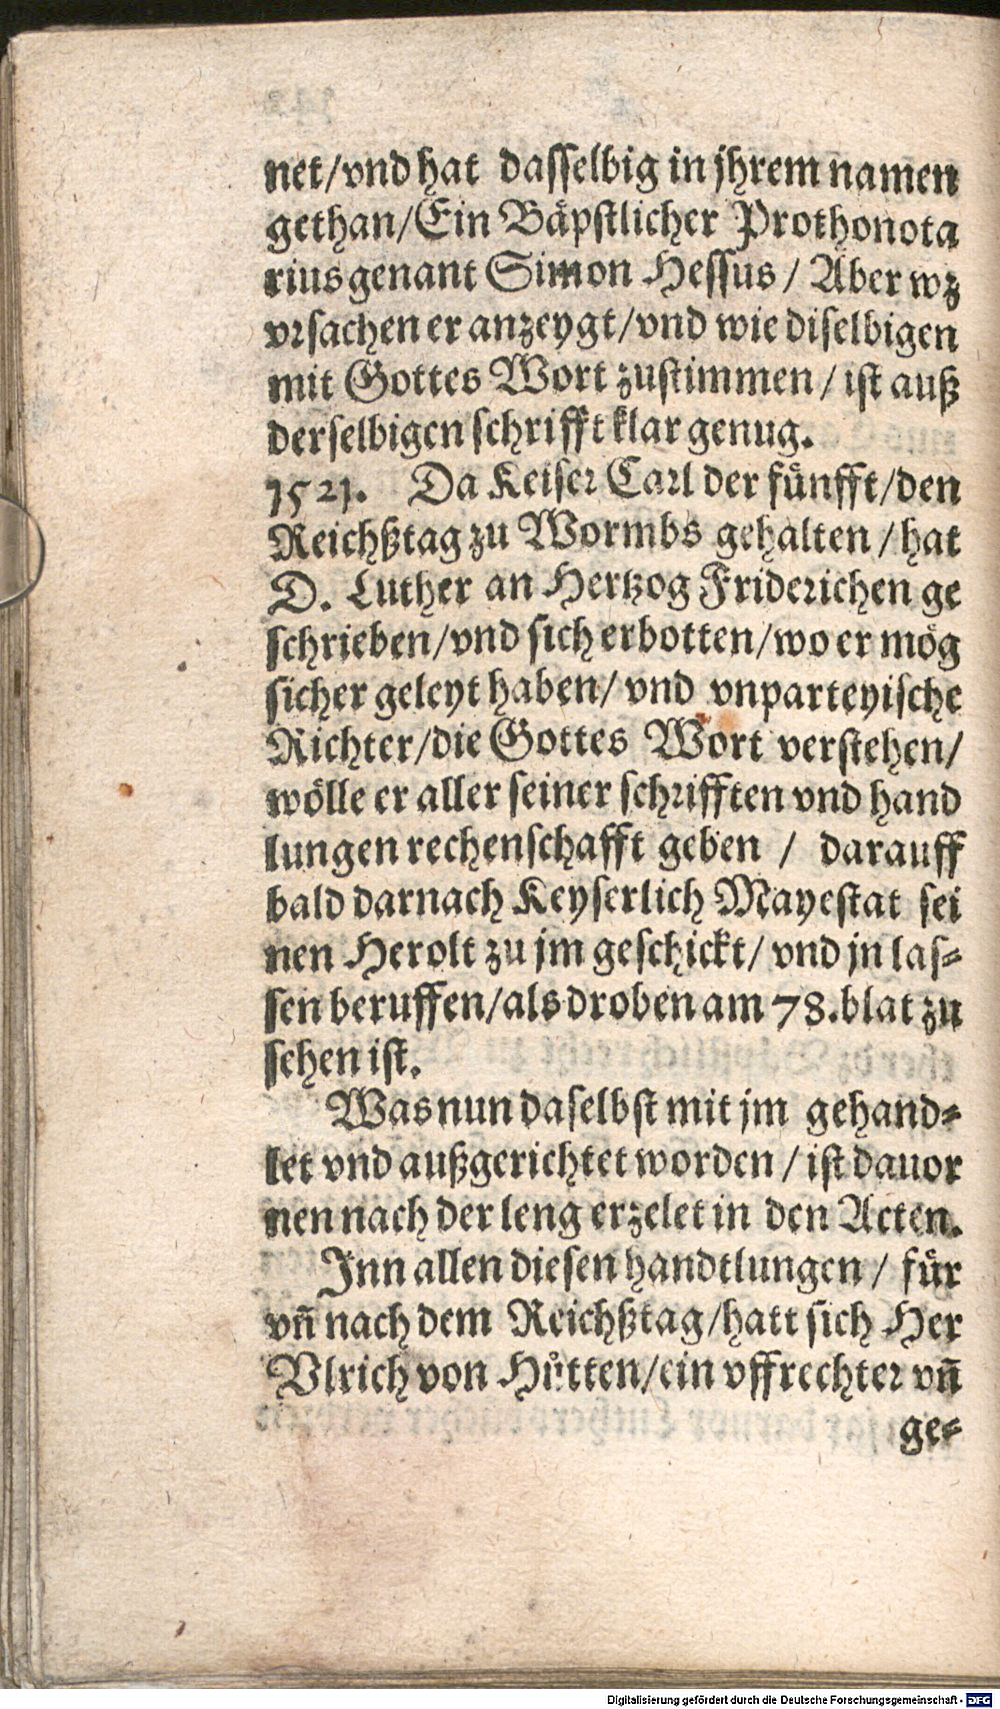 net/vnd hat dasselbig in jhrem namen
gethan/Ein Bäpstlicher Prothonota
rius genant Simon Hessus / Aber wz
vrsachen er anzeygt/vnd wie diselbigen
mit Gottes Wort zustimmen / ist auß
derselbigen schrifft klar genug.
1521. Da Keiser Carl der fünfft/den
Reichßtag zu Wormbs gehalten / hat
D. Luther an Hertzog Friderichen ge
schrieben/vnd sich erbotten/wo er mög
sicher geleyt haben/ vnd vnparteyische
Richter/die Gottes Wort verstehen/
wölle er aller seiner schrifften vnd hand
lungen rechenschafft geben / darauff
bald darnach Keyserlich Mayestat sei
nen Herolt zu jm geschickt/ vnd jn las-
sen beruffen/als droben am 78. blat zu
sehen ist.
Was nun daselbst mit jm gehand-
let vnd außgerichtet worden / ist dauor
nen nach der leng erzelet in den Acten.
Inn allen diesen handtlungen / für
vñ nach dem Reichßtag/hatt sich Her
Vlrich von Hůtten/ein vffrechter vñ
ge-
Digitalisierung gefördert durch die Deutsche Forschungsgemeinschaft - DFG